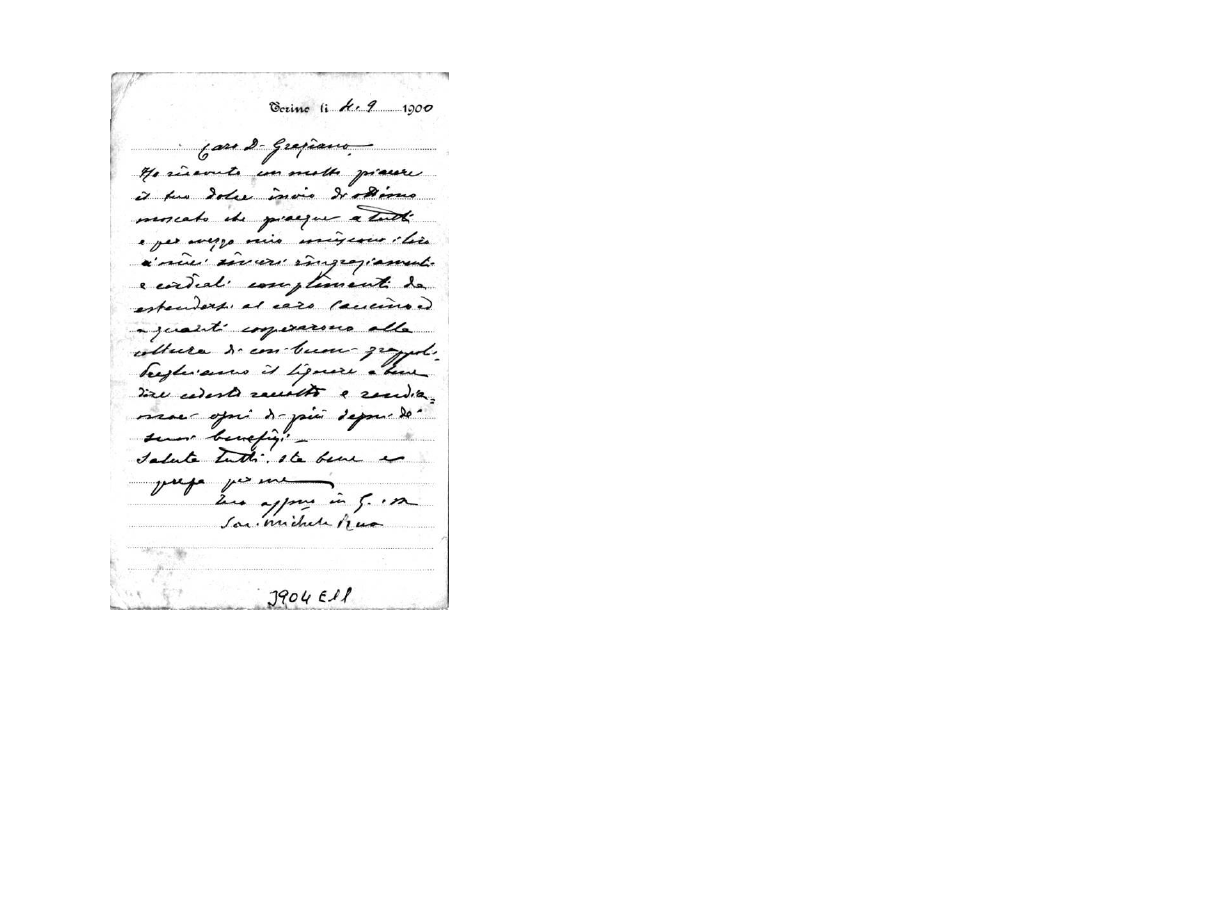 Torino li 4. 9 1900
Caro D. Graziano
Ho ricevuto con molto piacere
il tuo dolce invio di ottimo
moscato che piacque a tutti
e per mezzo mio uniscono i loro
a' miei sinceri ringraziamenti
e cordiali complimenti da
estendersi al caro Cancino ed
a quanti cooperarono alla
coltura di così buoni grappoli.
Preghiamo il Signore a bene
dire codesto raccolto e rendia=
moci ogni dì più degni de'
suoi benefizi. —
Saluta tutti. Sta bene e
prega per me
Tuo affmo in G. e M.
Sac. Michele Rua
3904 E11